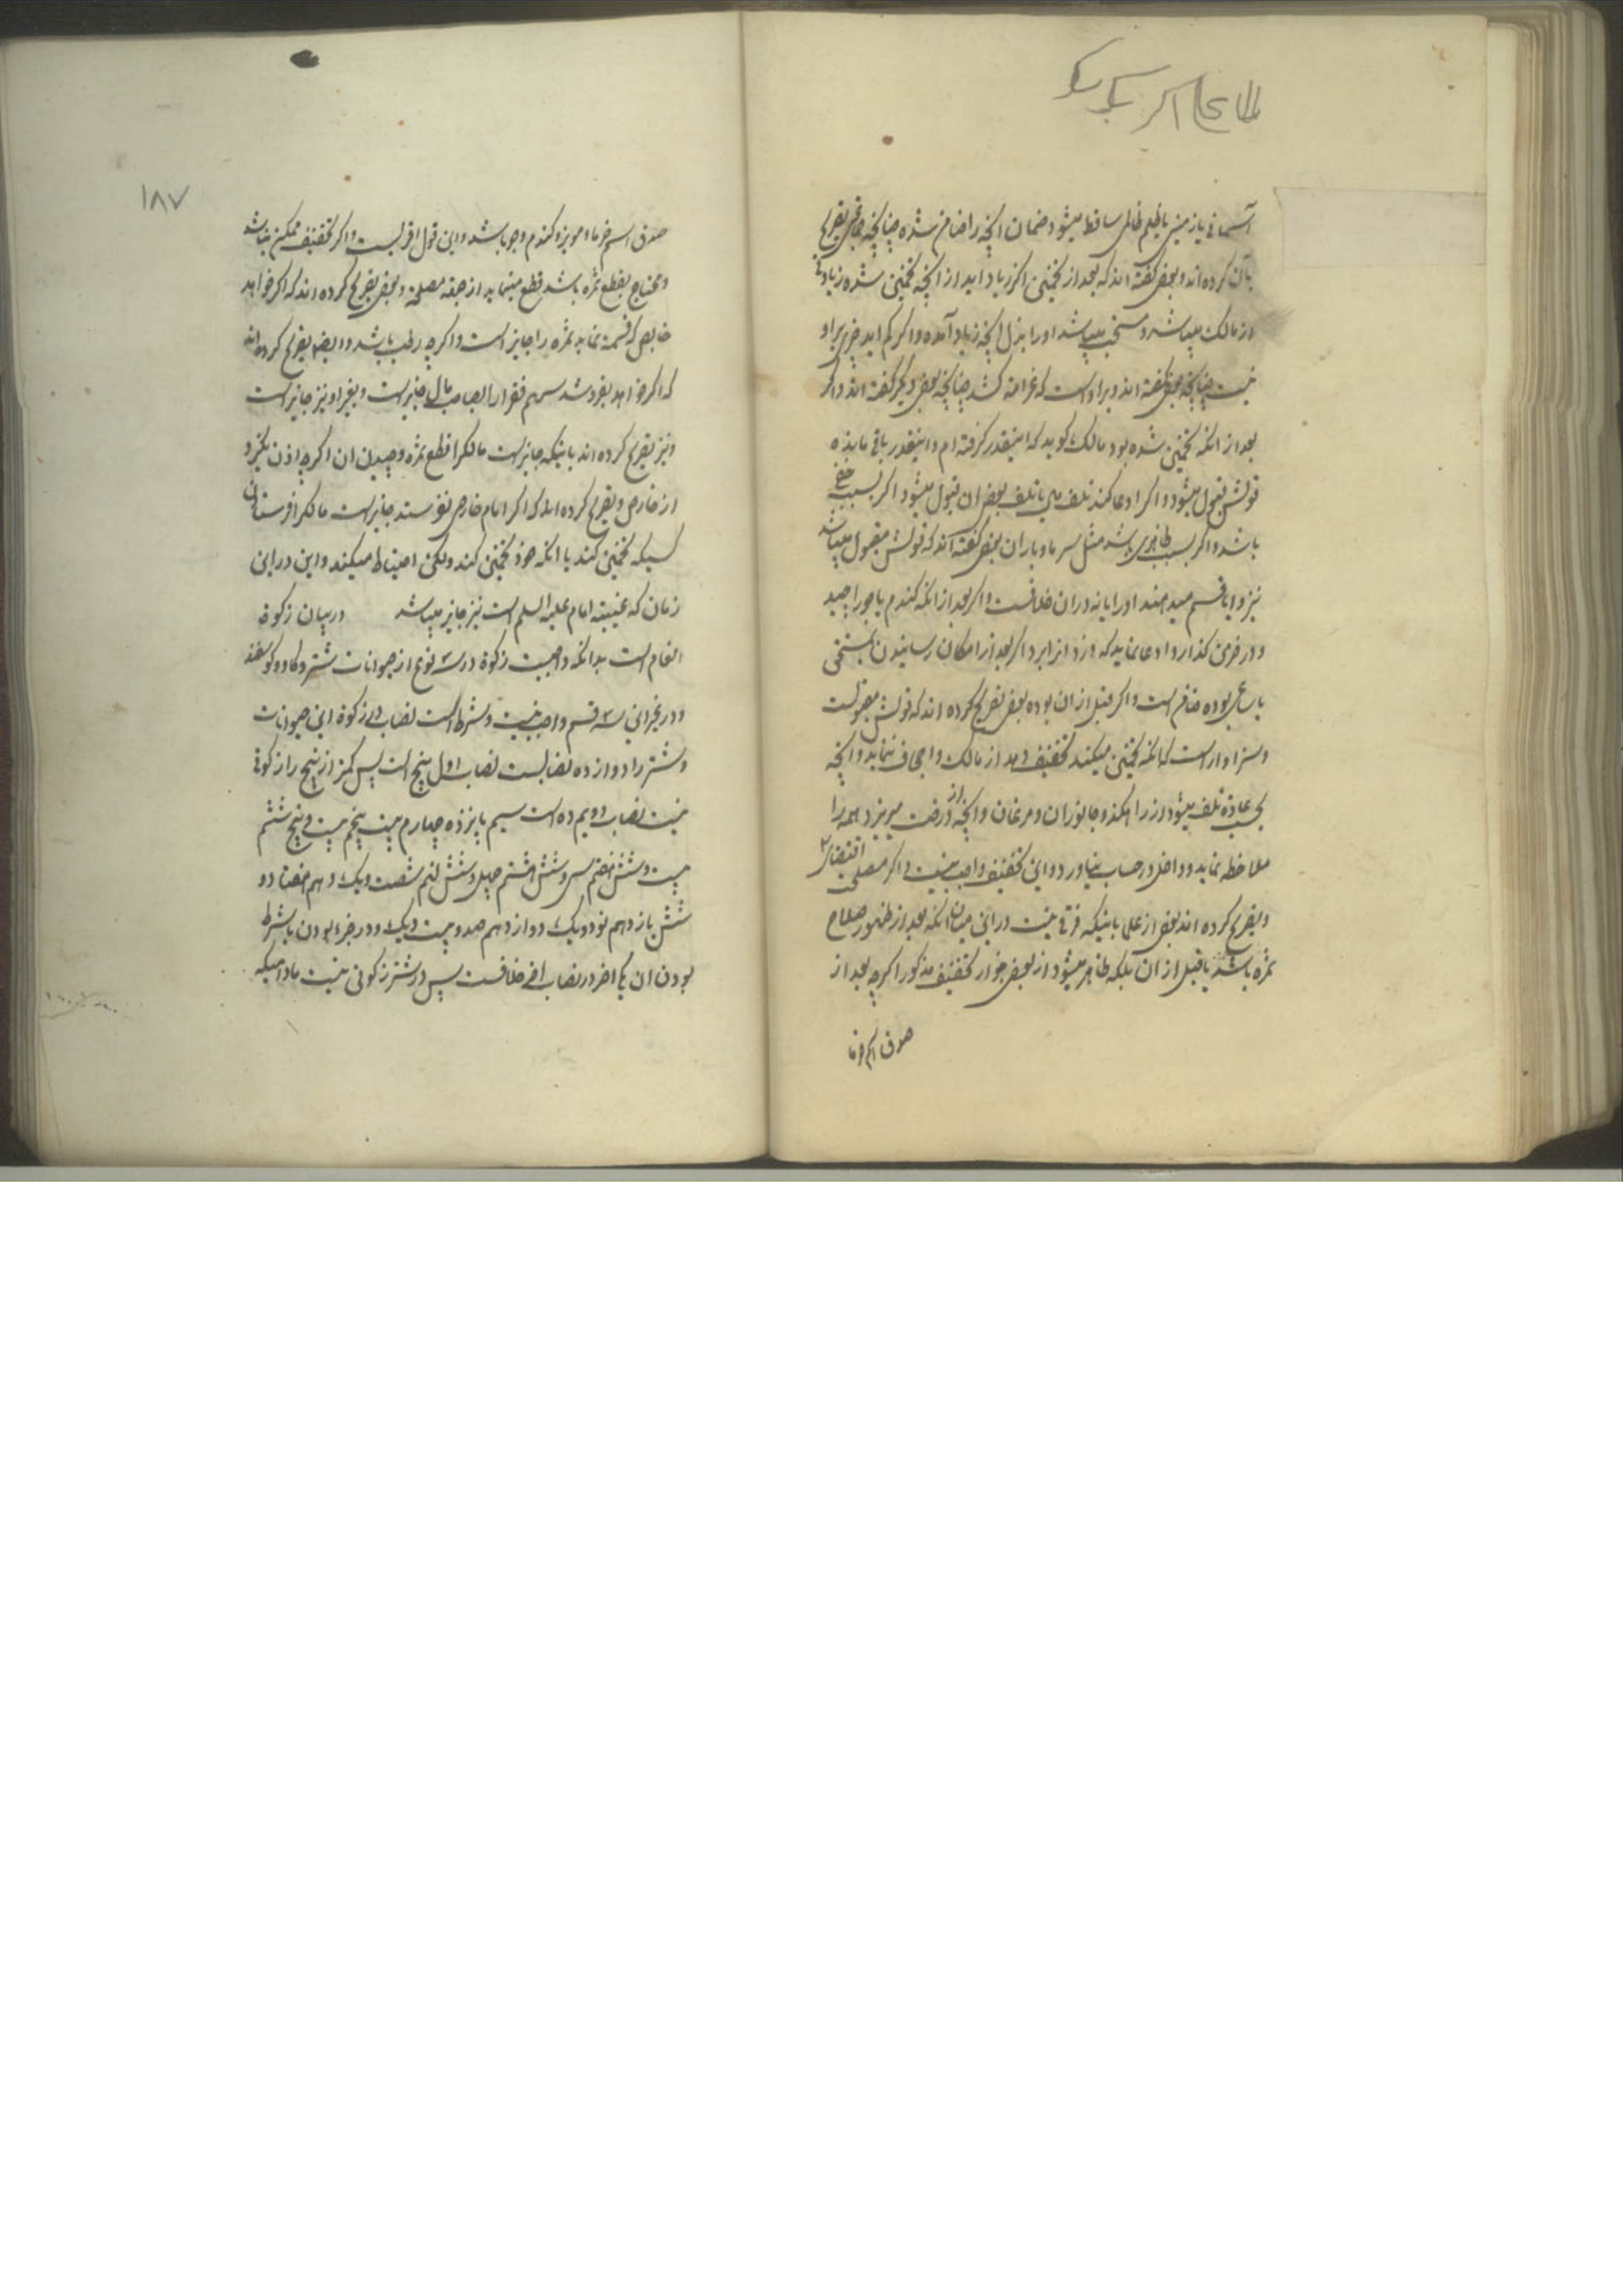 آسمانی یا زمینی یا بظلم ظالمی ساقط میشود ضمان انچه را ضامن شده چنانچه بعضی تصریح
بآن کرده اند و بعضی گفته اند که بعد از تخمین اکر زیاد اید از انچه تخمین شده زیادتی
از مالک میباشد و مستحب میباشد او را بذل انچه زیاد آمده و اکر کم اید چیزی بر او
نیست چنانچه بعضی گفته اند و بر اوست که غرامت کشد چنانچه بعضی دیکر گفته اند و اکر
بعد از انکه تخمین شده بود مالک کوید که اینقدر کرفته ام و اینقدر باقی مانده
قولش قبول میشود و اکر ادعا کند تلف را یا تلف بعض ان قبول میشود اکر بسبب خفی
باشد و اکر بسبب ظاهری باشد مثل سرما و باران بعضی گفته اند که قولش مقبول میباشد
نیز و ایا قسم میدهند او را یا نه در ان خلافست و اکر بعد از انکه کندم یا جو را چید
و در خرمن کذارد ادعا نماید که دزد انرا برد اکر بعد از امکان رسانیدن بمستحق
یا ساعی بوده ضامن است و اکر قبل از ان بوده بعضی تصریح کرده اند که قولش مقبولست
و سزاوار است که انکه تخمین میکند تخفیف دهد از مالک و اجحاف ننماید و انچه
بحسب عادة تلف میشود از راهکذر و جانوران و مرغان و انچه از درخت میریزد همه را
ملاحظه نماید و داخل در حساب نیاورد و این تخفیف واجب نیست و اکر مصلحت اقتضا
و تصریح کرده اند بعضی از علما باینکه فرقی نیست در این میان انکه بعد از ظهور صلاح
ثمره باشد یا قبل از ان بلکه ظاهر میشود از بعضی جواز تخفیف مذکور اکرچه بعد از
صدق اسم خرما
١٨٧
صدق اسم خرما و مویز و کندم و جو باشد و این قول اقربست و اکر تخفیف ممکن نباشد
و محتاج بقطع ثمره باشد قطع مینماید از جهة مصلحة و بعضی تصریح کرده اند که اکر خواهد
خارص که قسمة نماید ثمره را جایز است و اکرچه رطب باشد و ایضا تصریح کرده اند
که اکر خواهد بفروشد سهم فقرا را بصاحب مال جایز است و بغیر او نیز جایز است
و نیز تصریح کرده اند باینکه جایز است مالکرا قطع ثمره و چیدن ان اکرچه اذن نکیرد
از خارص و تصریح کرده اند که اکر امام خارص نفرستد جایز است مالکرا فرستادن
کسیکه تخمین کند یا انکه خود تخمین کند ولکن احتیاط میکند و این در این
زمان که غیبة امام علیه السلم است نیز جایز میباشد در بیان زکوة
انعام است بدانکه واجبست زکوة در سه نوع از حیوانات شتر و کاو و کوسفند
و در غیر این سه قسم واجب نیست و شرط است نصاب در زکوة این حیوانات
و شتر را دوازده نصابست نصاب اول پنج است پس کمتر از پنج را زکوتی
نیست نصاب دویم ده است سیم پانزده چهارم بیست پنجم بیست و پنج ششم
بیست و شش هفتم سی و شش هشتم چهل و شش نهم شصت و یک دهم هفتاد و
شش یازدهم نود و یک دوازدهم صد و بیست و یک و در جزء بودن یا شرط
بودن ان یک اخر در نصاب اخر خلافست پس در شتر زکوتی نیست مادامیکه